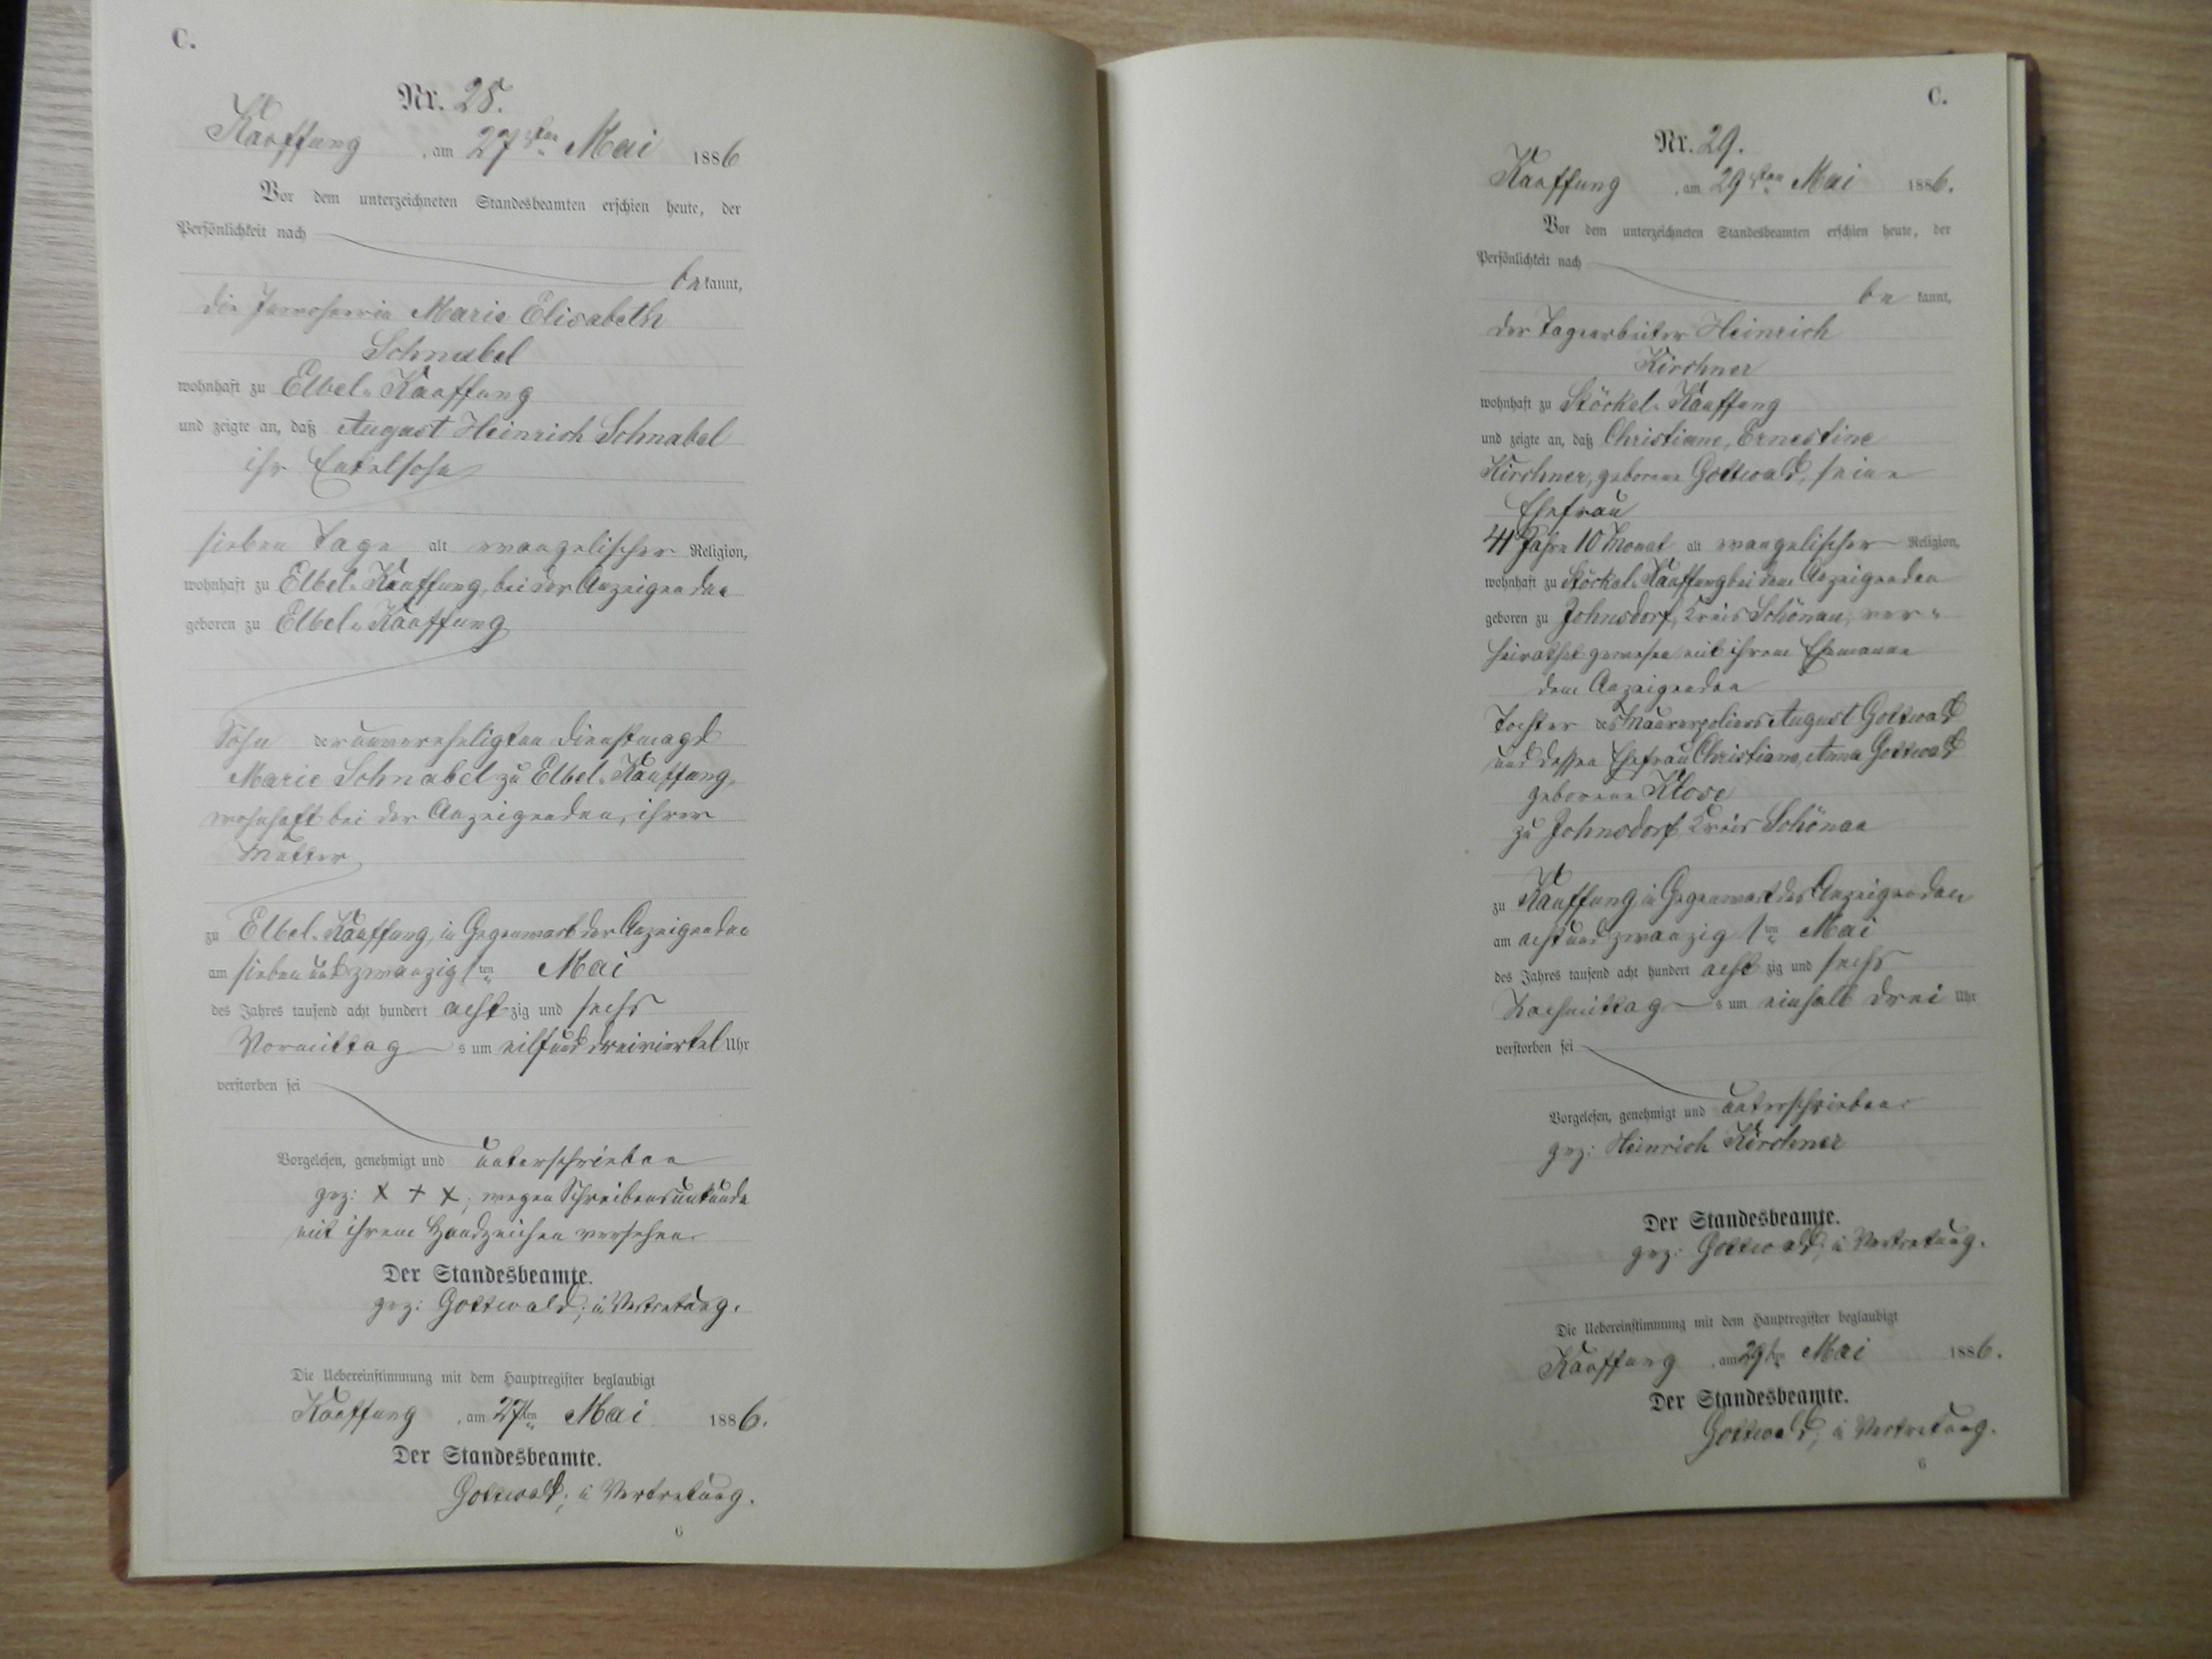 C.
Nr. 28.
Kauffung, am 27ten Mai 1886
Vor dem unterzeichneten Standesbeamten erschien heute, der
Persönlichkeit nach
bekannt,
die Inwohnerin Marie Elisabeth
Schnabel
wohnhaft zu Elbel-Kauffung
und zeigte an, daß August Heinrich Schnabel
ihr Enkelsohn
sieben Tage alt evangelischer Religion,
wohnhaft zu Elbel-Kauffung, bei der Anzeigenden
geboren zu Elbel-Kauffung
Sohn der unvereheligten Dienstmagd
Marie Schnabel zu Elbel-Kauffung,
wohnhaft bei der Anzeigenden, ihrer
Mutter
zu Elbel-Kauffung, in Gegenwart der Anzeigenden
am sieben und zwanzigsten Mai
des Jahres tausend acht hundert achtzig und sechs
Vormittags um eilf und dreiviertel Uhr
verstorben sei
Vorgelesen, genehmigt und unterschrieben
gez: X + X, wegen Schreibensunkunde
mit ihrem Handzeichen versehen.
Der Standesbeamte.
gez: Gottwald, in Vertretung.
Die Uebereinstimmung mit dem Hauptregister beglaubigt
Kauffung, am 27ten Mai 1886.
Der Standesbeamte.
Gottwald, in Vertretung.
6
C.
Nr. 29.
Kauffung, am 29sten Mai 1886.
Vor dem unterzeichneten Standesbeamten erschien heute, der
Persönlichkeit nach
bekannt,
der Tagearbeiter Heinrich
Kirchner
wohnhaft zu Stöckel-Kauffung
und zeigte an, daß Christiane, Ernestine
Kirchner, geborene Gottwald, seine
Ehefrau
41 Jahre 10 Monat alt evangelischer Religion,
wohnhaft zu Stöckel-Kauffung bei dem Anzeigenden
geboren zu Johnsdorf, Kreis Schönau, ver-
heirathet gewesen mit ihrem Ehemanne
dem Anzeigenden
Tochter des Maurerpoliers August Gottwald
und dessen Ehefrau Christiane, Anna Gottwald
geborene Klose
zu Johnsdorf, Kreis Schönau
zu Kauffung, in Gegenwart des Anzeigenden
am acht und zwanzigsten Mai
des Jahres tausend acht hundert achtzig und sechs
Nachmittags um einhalb drei Uhr
verstorben sei
Vorgelesen, genehmigt und unterschrieben.
gez: Heinrich Kirchner
Der Standesbeamte.
gez: Gottwald, in Vertretung.
Die Uebereinstimmung mit dem Hauptregister beglaubigt
Kauffung, am 29ten Mai 1886.
Der Standesbeamte.
Gottwald, in Vertretung.
6